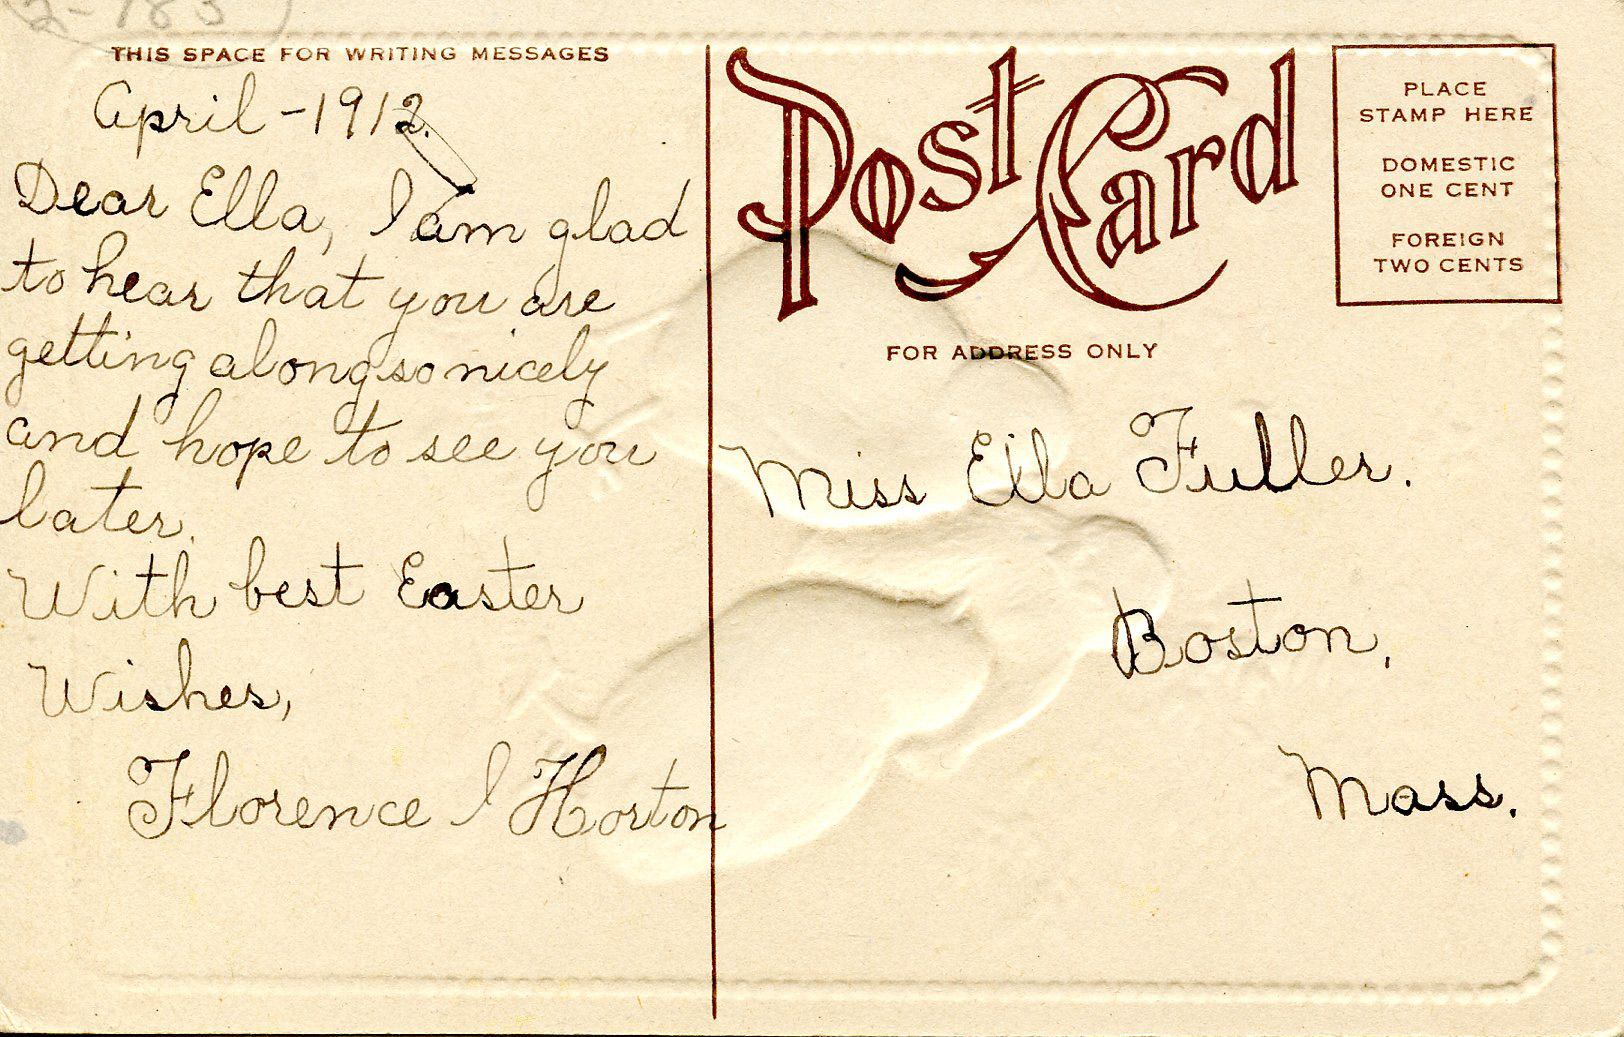 2-183
THIS SPACE FOR WRITING MESSAGES
April - 1912.
Dear Ella, I am glad
to hear that you are
getting along so nicely
and hope to see you
later.
With best Easter
Wishes,
Florence I Horton
Post Card
FOR ADDRESS ONLY
PLACE
STAMP HERE
DOMESTIC
ONE CENT
FOREIGN
TWO CENTS
Miss Ella Fuller.
Boston,
Mass.